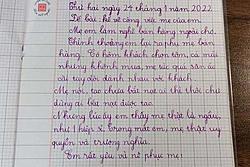 Thứ hai ngày 24 tháng 1 năm 2022
Đề bài: kể về công việc mẹ của em.
Mẹ em làm nghề bán hàng ngoài chợ.
Thỉnh thoảng em lại ra phụ mẹ bán
hàng. Có hôm khách chọn tôm, cá mãi
nhưng không mua, mẹ tức quá sẵn cá
cãi tay đôi đánh nhau với khách.
Mẹ nói, tao chửi bắt nạt ai thì thôi chứ
đừng ai bắt nạt được tao.
Những lúc ấy em thấy mẹ thật là ngầu,
như 1 hiệp sĩ. Trong mắt em, mẹ thật uy
quyền và trượng nghĩa.
Em rất yêu và nể phục mẹ!